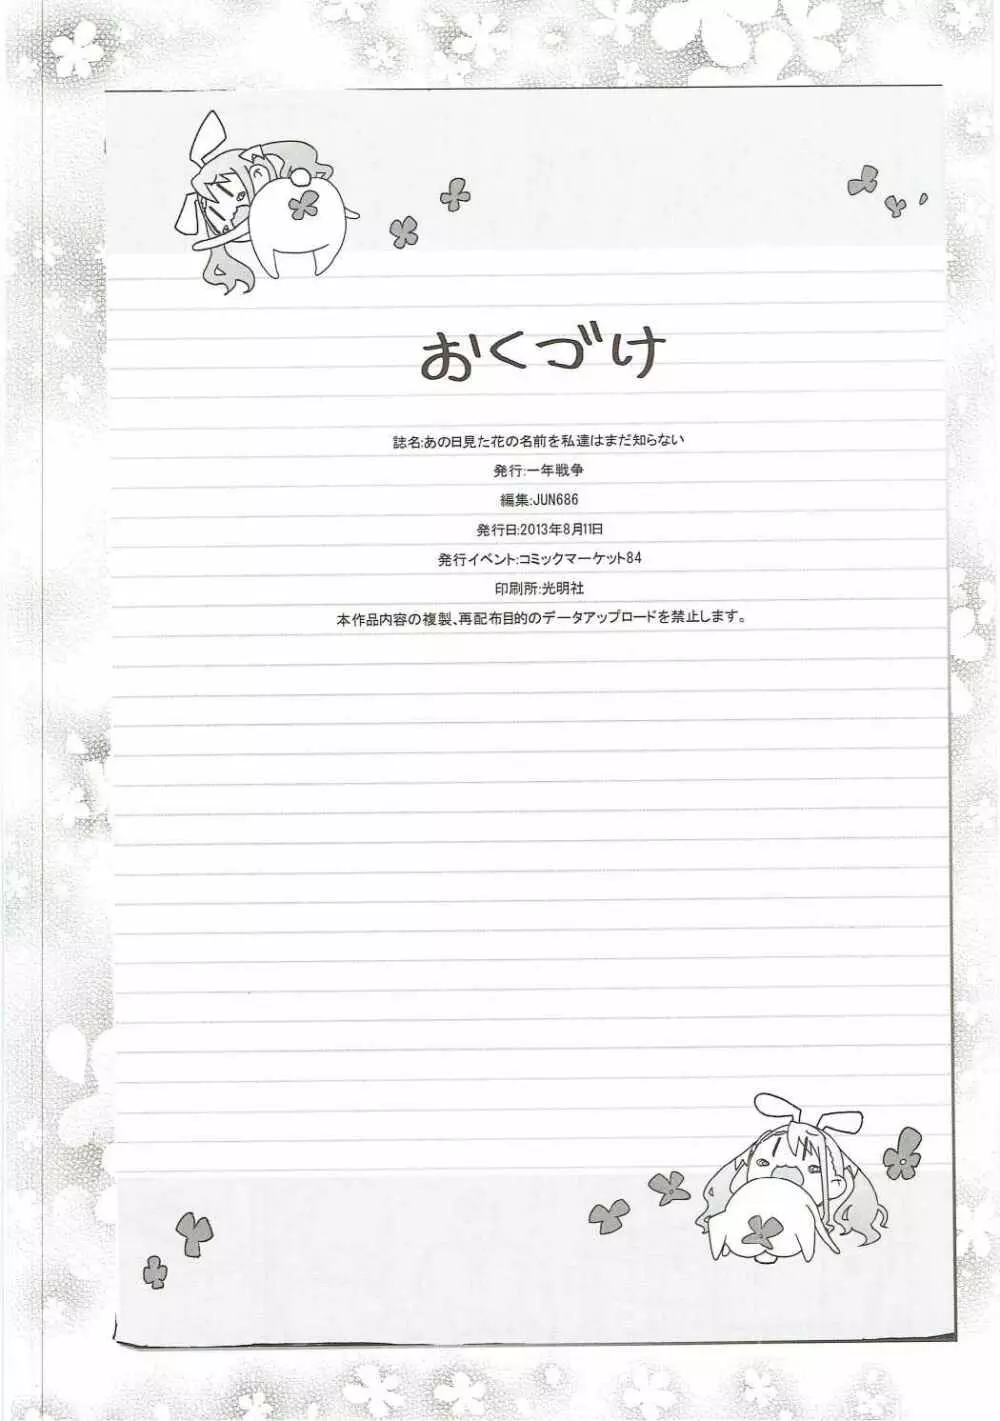 おくづけ
誌名:あの日見た花の名前を私達はまだ知らない
発行:一年戦争
編集:JUN686
発行日:2013年8月11日
発行イベント:コミックマーケット84
印刷所:光明社
本作品内容の複製、再配布目的のデータアップロードを禁止します。